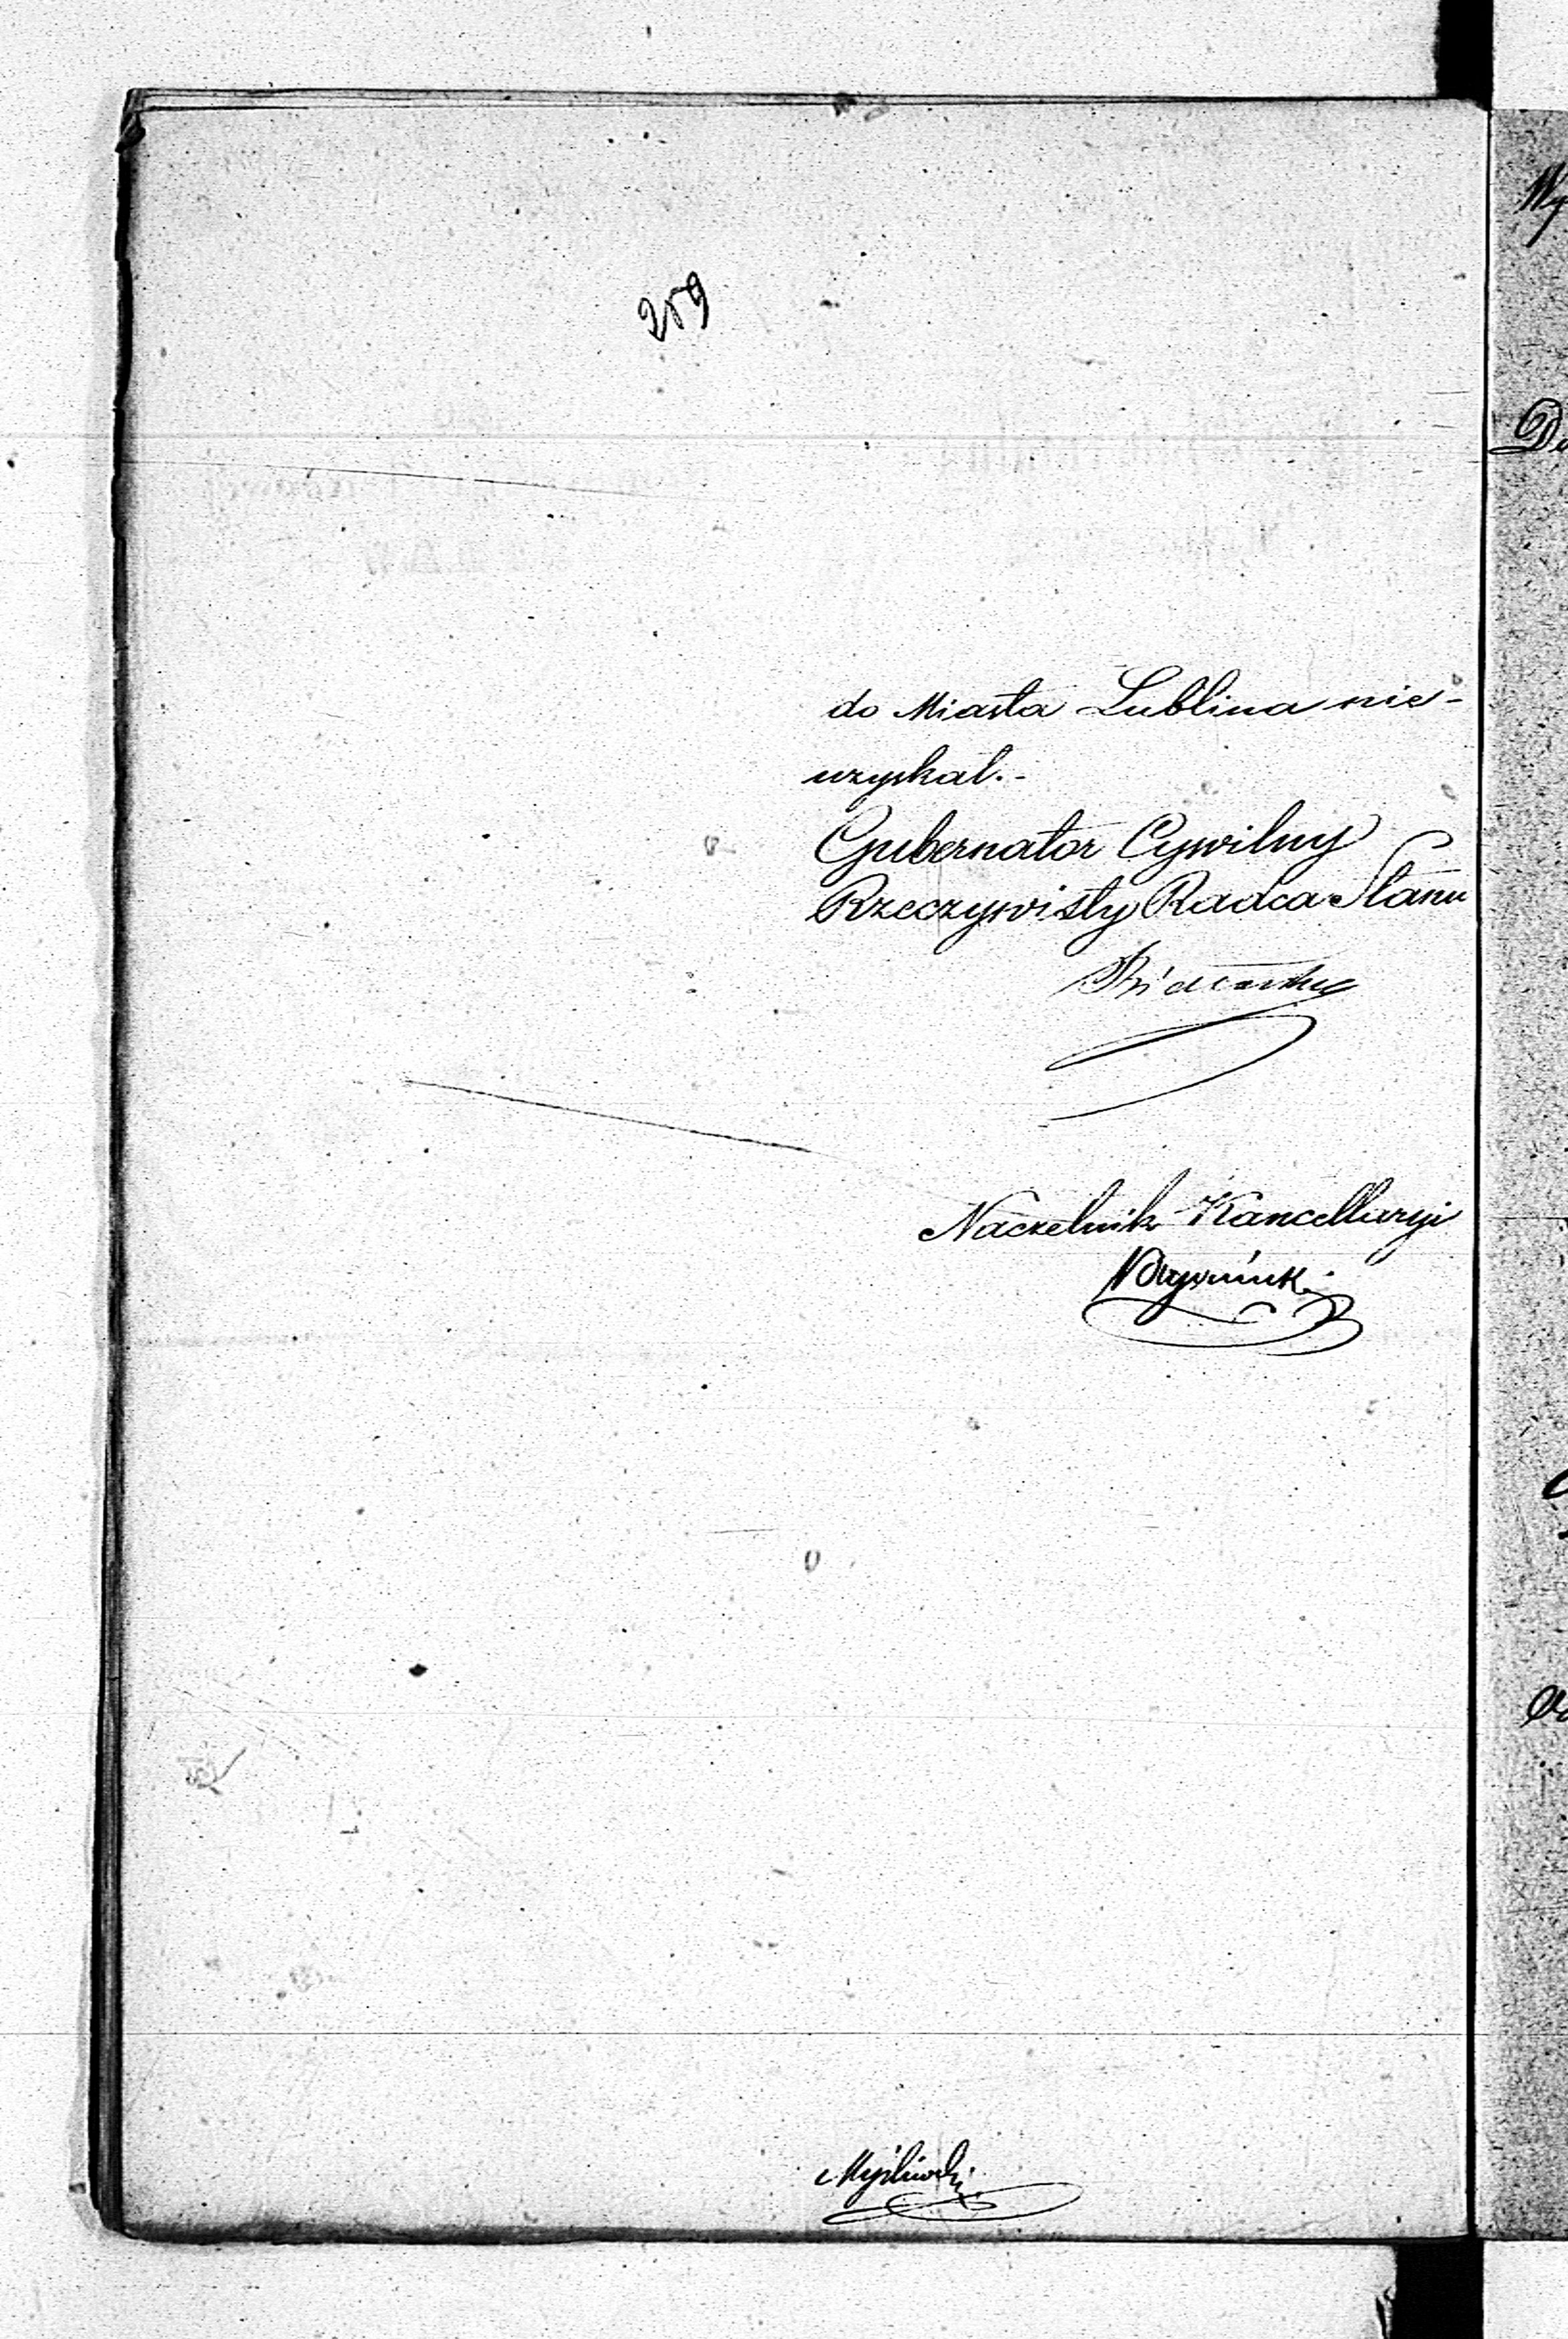 259
do Miasta Lublina nie-
uzyskał.-
Gubernator Cywilny
Rzeczywisty Radca Stanu
Naczelnik Kancellaryi
Myśliwski